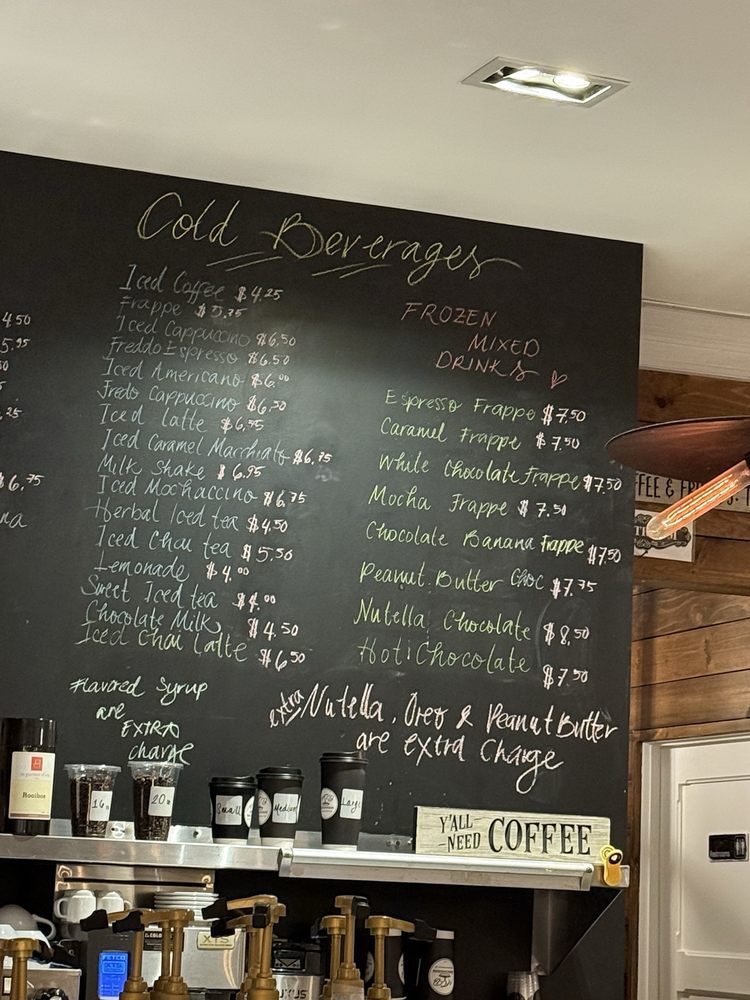 Cold Beverages
4.50
5.95
50
.25
$6.75
na
Iced Coffee $4.25
Frappe $5.75
Iced Cappuccino $6.50
Freddo Espresso $6.50
Iced Americano $6.00
Fredo Cappuccino $6.50
Iced Latte $6.55
Iced Caramel Macchiato $6.75
Milk Shake $6.95
Iced Mochaccino $6.75
Herbal Iced tea $4.50
Iced Chai tea $5.50
Lemonade $4.00
Sweet Iced tea $4.00
Chocolate Milk $4.50
Iced Chai Latte $6.50
Flavored Syrup
are
EXTRA
charge
FROZEN
MIXED
DRINKS
Espresso Frappe $7.50
Caramel Frappe $7.50
White Chocolate Frappe $7.50
Mocha Frappe $7.50
Chocolate Banana Frappe $7.50
Peanut Butter Choc $7.75
Nutella Chocolate $8.50
Hot Chocolate $7.50
extra Nutella, Oreo & Peanut Butter
are extra Charge
Rooibos
16oz
20oz
Small
Medium
Large
Y'ALL
NEED
COFFEE
FFEE & FR
FETCO
XTS